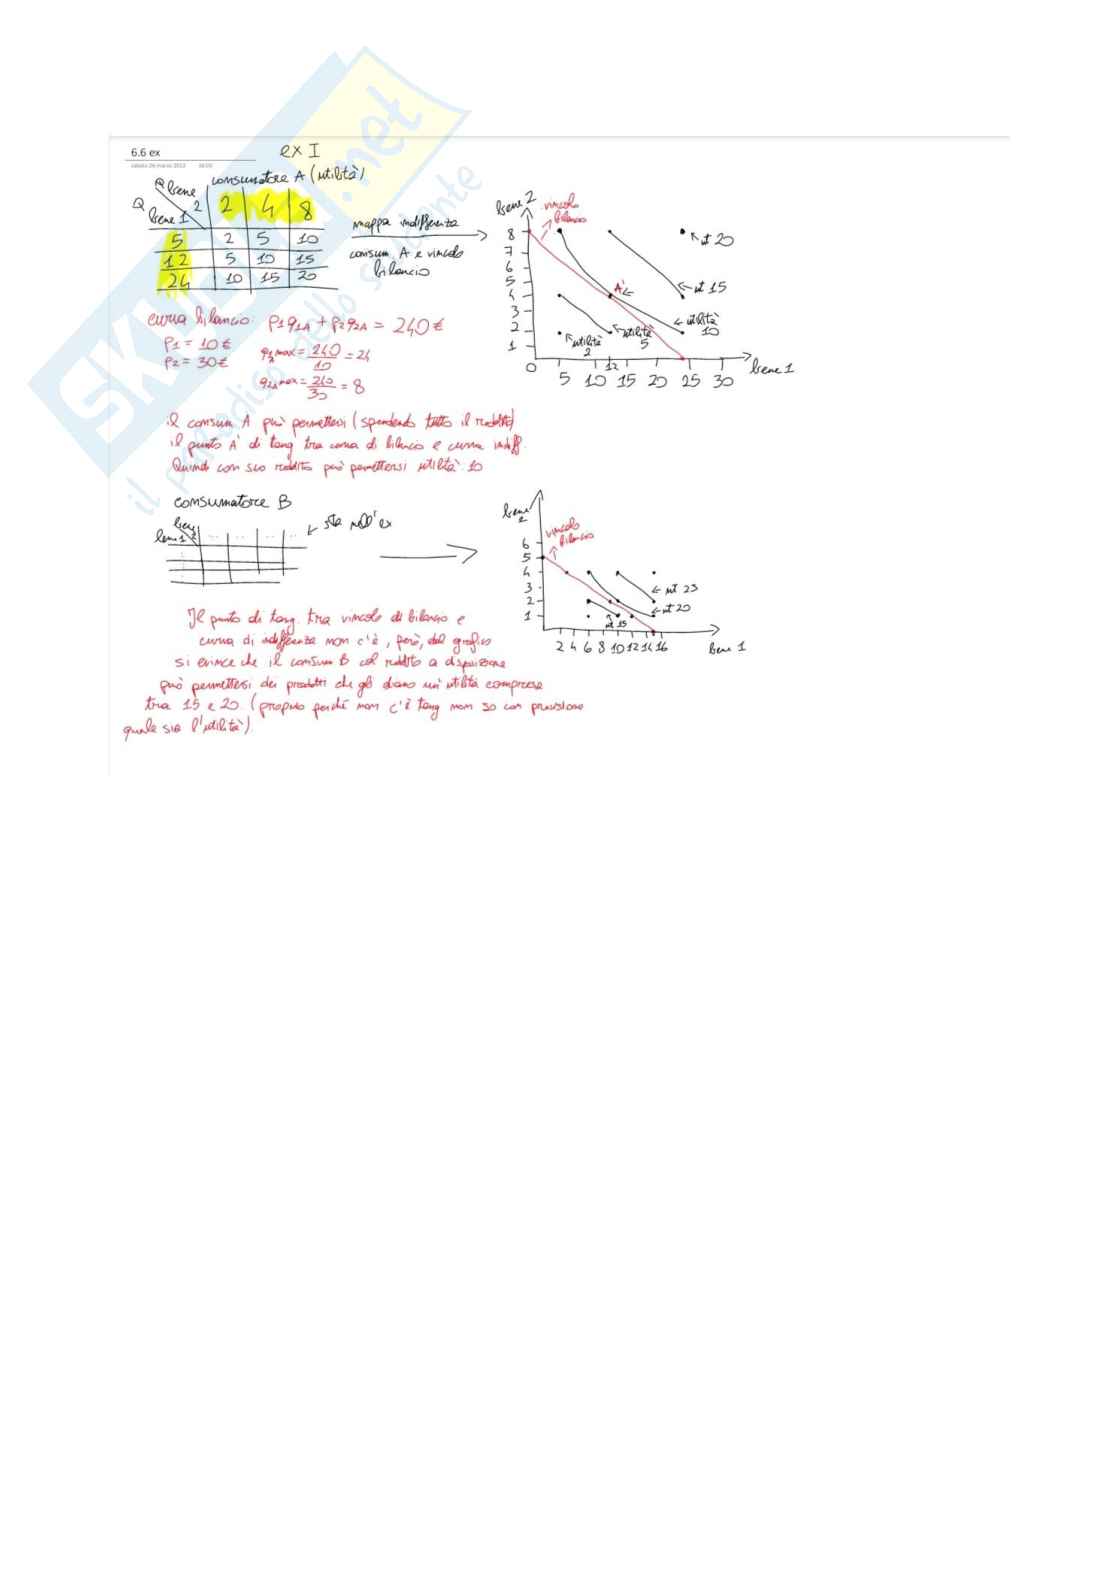 6.6 ex
sabato 26 marzo 2022
ex I
consumatore A (utilità)
Q bene 2
Q bene 1
2 4 8
5 2 5 10
12 5 10 15
24 10 15 20
mappa indifferenza
consum. A e vincolo
bilancio
curva bilancio: P1q1A + P2q2A = 240 €
P1 = 10 €
P2 = 30 €
max = 240/10 = 24
max = 240/30 = 8
il consum A può permettersi (spendendo tutto il reddito)
il punto A' di tang tra curva di bilancio e curva indiff.
Quindi con suo reddito può permettersi utilità 10
bene 2
vincolo
bilancio
8
7
6
5
4
3
2
1
0 5 10 12 15 20 25 30
bene 1
A'
ut 20
ut 15
utilità 10
utilità 5
utilità 2
consumatore B
bene 2
bene 1
sta nell'ex
bene 2
vincolo
bilancio
6
5
4
3
2
1
2 4 6 8 10 12 14 16
bene 1
ut 23
ut 20
ut 15
Il punto di tang. tra vincolo di bilancio e
curva di indifferenza non c'è, però, dal grafico
si evince che il consum B col reddito a disposizione
può permettersi dei prodotti che gli diano un'utilità compresa
tra 15 e 20. (proprio perché non c'è tang non so con precisione
quale sia l'utilità).
SKUOLA.net
il paradiso dello studente